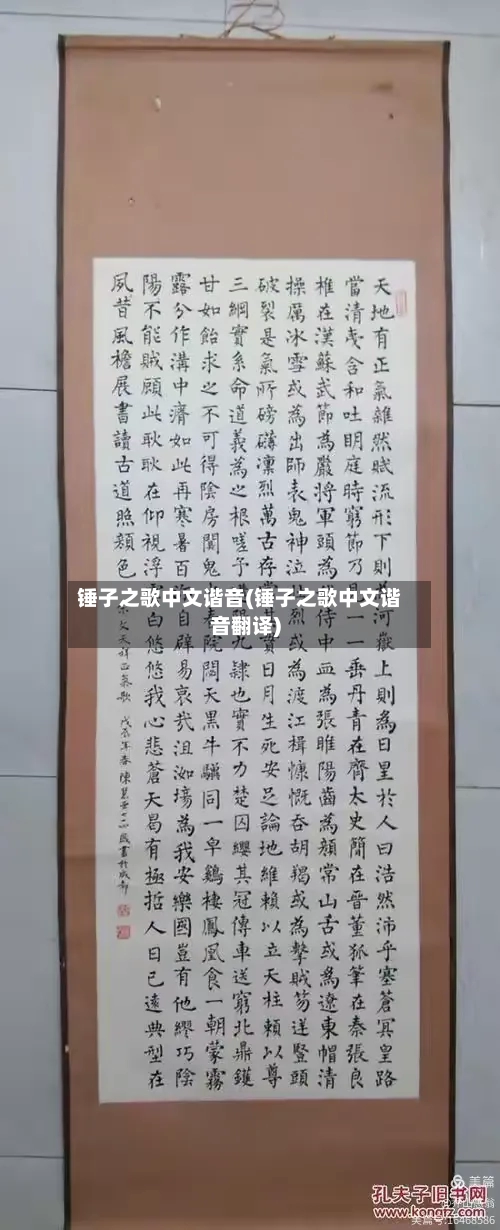 天地有正氣雜然賦流形下則河嶽上則為日星於人曰浩然沛乎塞蒼冥皇路
當清夷含和吐明庭時窮節乃一一垂丹青在齊太史簡在晉董狐筆在秦張良
椎在漢蘇武節為嚴將軍頭為侍中血為張睢陽齒為顏常山舌或為遼東帽清
操厲冰雪或為出師表鬼神泣烈或為渡江楫慷慨吞胡羯或為擊賊笏逆豎頭
破裂是氣所磅礴凜烈萬古存貫日月生死安足論地維賴以立天柱賴以尊
三綱實系命道義為之根嗟予九隸也實不力楚囚纓其冠傳車送窮北鼎鑊
甘如飴求之不可得陰房闃鬼春院閟天黑牛驥同一皁鷄棲鳳凰食一朝蒙霧
露分作溝中瘠如此再寒暑百自辟易哀哉沮洳場為我安樂國豈有他繆巧陰
陽不能賊顧此耿耿在仰視浮白悠悠我心悲蒼天曷有極哲人日已遠典型在
夙昔風檐展書讀古道照顏色
文天祥正氣歌 戊辰年春陳書於成都
锤子之歌中文谐音(锤子之歌中文谐
音翻译)
美篇
孔夫子旧书网
www.kongfz.com